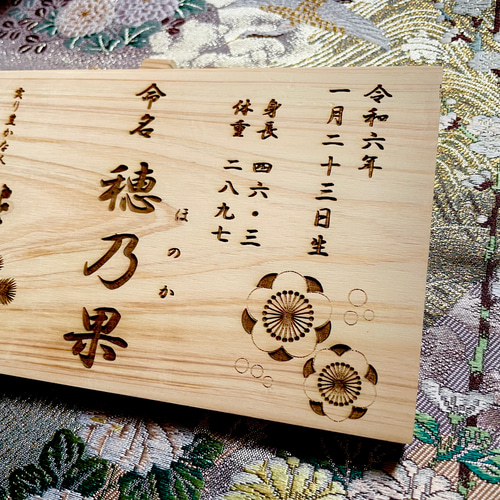 令和六年
一月二十三日生
身長 四六・三
体重 二八九七
命名
穂乃果
ほのか